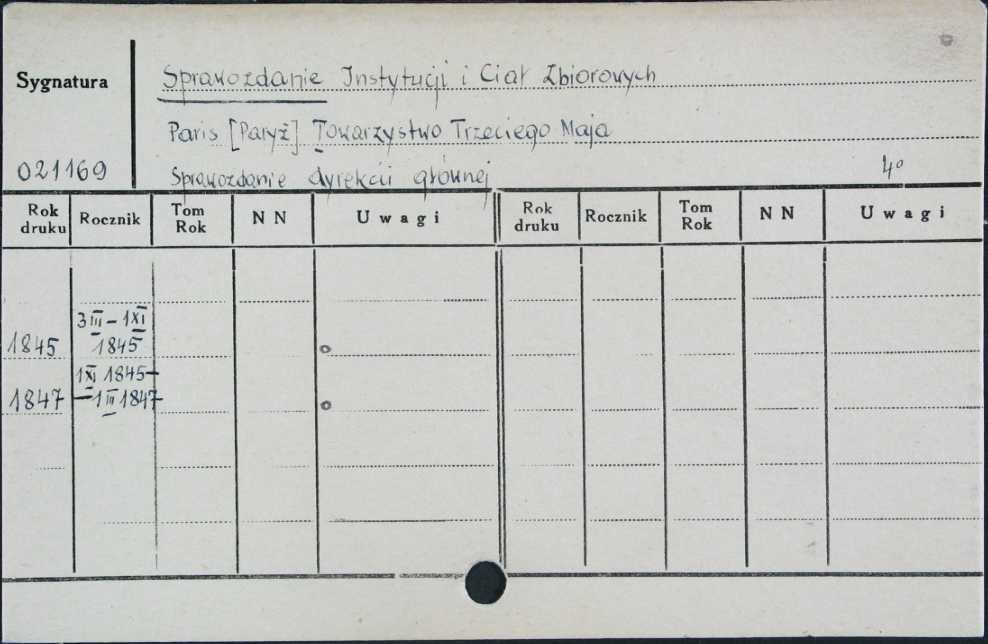 Sprawozdanie Instytucji i Ciał Zbiorowych
Sygnatura
Paris [Paryż] Towarzystwo Trzeciego Maja
021169
Sprawozdanie dyrekcii głównej 4°
Rok druku Rocznik Tom Rok N N Uwagi Rok druku Rocznik Tom Rok N N Uwagi
3 III – 1 XI
1845 1845 o
1 XI 1845 –
1847 – 1 III 1847 o